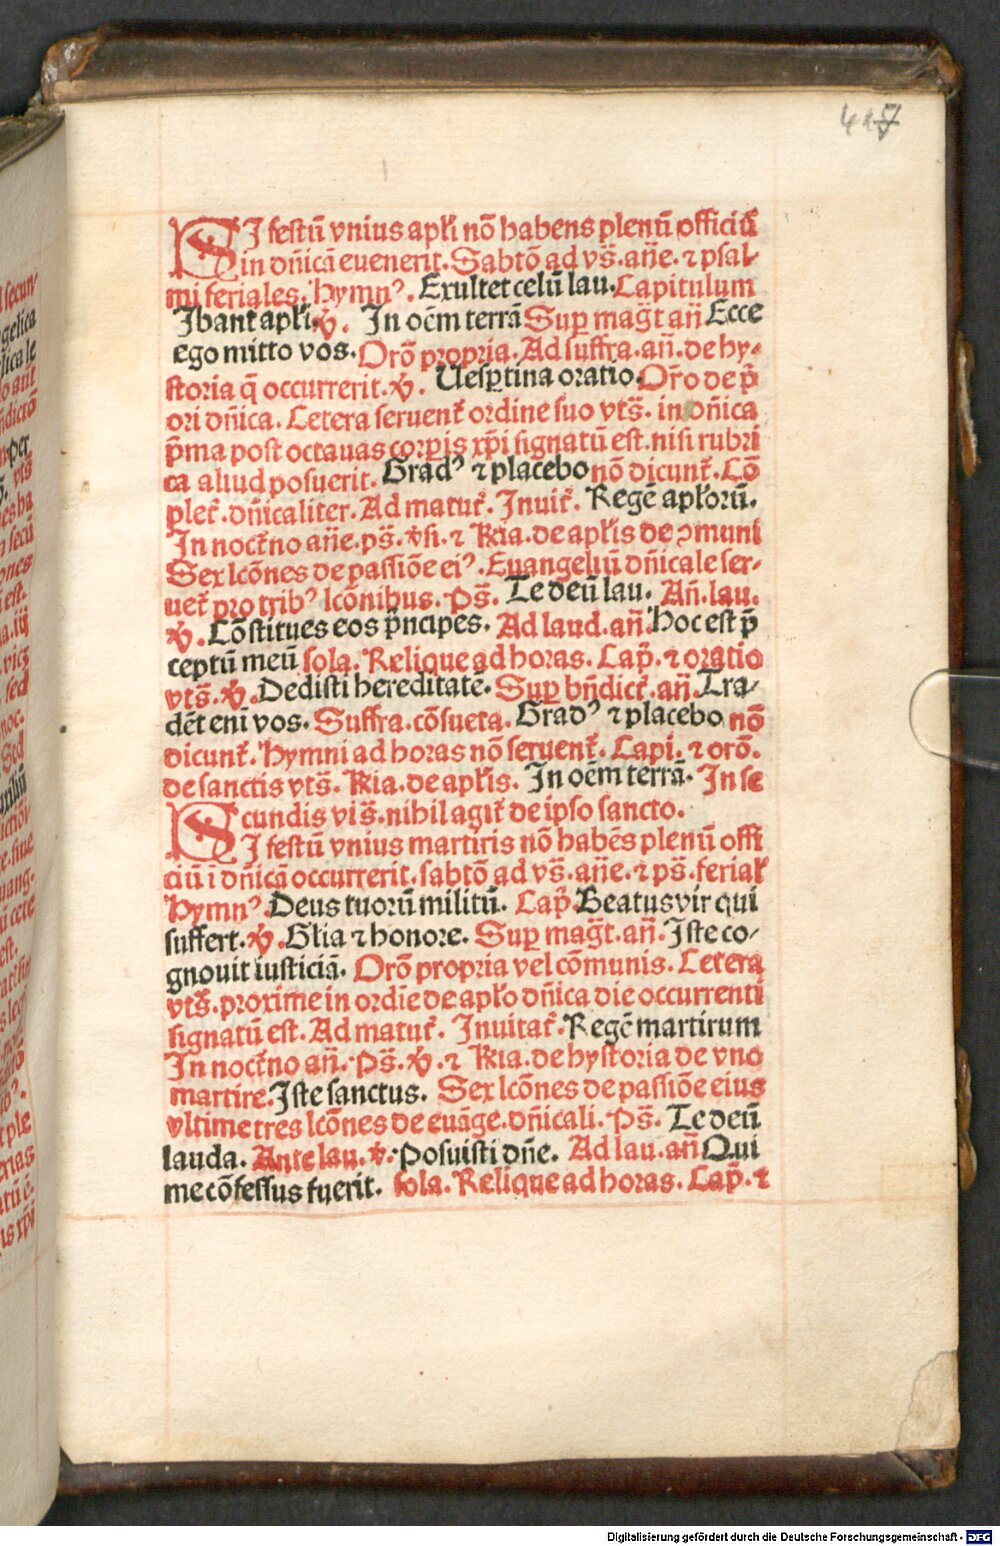 417
SI festū vnius apłi nō habens plenū officiū
in dn̄icā euenerit. Sabtō ad vs̄. an̄e. ⁊ psal-
mi feriales. Hymnꝰ. Exultet celū lau. Capitulum
Ibant apłi. ℣. In oēm terrā Sup mag̃t an̄ Ecce
ego mitto vos. Orō propria. Ad suffra. an̄. de hy-
storia q̄ occurrerit. ℣. Uesꝑtina oratio. Or̄o de p̄
ori dn̄ica. Cetera seruent̃ ordine suo vts̄. in dn̄ica
p̄ma post octauas corꝑis xp̄i signatū est. nisi rubri
ca aliud posuerit. Gradꝰ ⁊ placebo nō dicunt̃. Cō
plet̃. dn̄icaliter. Ad matut̃. Inuit̃. Regē apłorū.
In noct̃no an̄e. ps̄. v̄si. ⁊ R̃ia. de apłis de ꝯmuni
Sex lcōnes de passiōe eiꝰ. Euangeliū dn̄icale ser-
uet̃ pro tribꝰ lcōnibus. Ps̄. Te deū lau. An̄. lau.
℣. Cōstitues eos p̄ncipes. Ad laud. an̄. Hoc est p̄
ceptū meū sola. Relique ad horas. Cap̄. ⁊ oratio
vts̄. ℣. Dedisti hereditatē. Suꝑ bn̄dict̃. an̄. Tra-
dēt eni vos. Suffra. cōsueta. Gradꝰ ⁊ placebo nō
dicunt̃. Hymni ad horas nō seruent̃. Capi. ⁊ orō.
de sanctis vts̄. R̃ia. de apłis. In oēm terrā. In se
cundis vis̄. nihil agit̃ de ipso sancto.
SI festū vnius martiris nō habēs plenū offi
ciū ī dn̄icā occurrerit. sabtō ad vs̄. an̄e. ⁊ ps̄. ferial̃
Hymnꝰ. Deus tuorū militū. Cap̄. Beatus vir qui
suffert. ℣. Glia ⁊ honore. Suꝑ mag̃t. an̄. Iste co-
gnouit iusticiā. Orō propria vel cōmunis. Cetera
vts̄. proxime in ordīe de apło dn̄ica die occurrenti
signatū est. Ad matut̃. Inuitat̃. Regē martirum
In noct̃no an̄. Ps̄. ℣. ⁊ R̃ia. de hystoria de vno
martire. Iste sanctus. Sex lcōnes de passiōe eius
vltime tres lcōnes de euāge. dn̄icali. Ps̄. Te deū
lauda. Ante lau. ℣. Posuisti dn̄e. Ad lau. an̄ Qui
me cōfessus fuerit. sola. Relique ad horas. Cap̄. ⁊
Digitalisierung gefördert durch die Deutsche Forschungsgemeinschaft - DFG